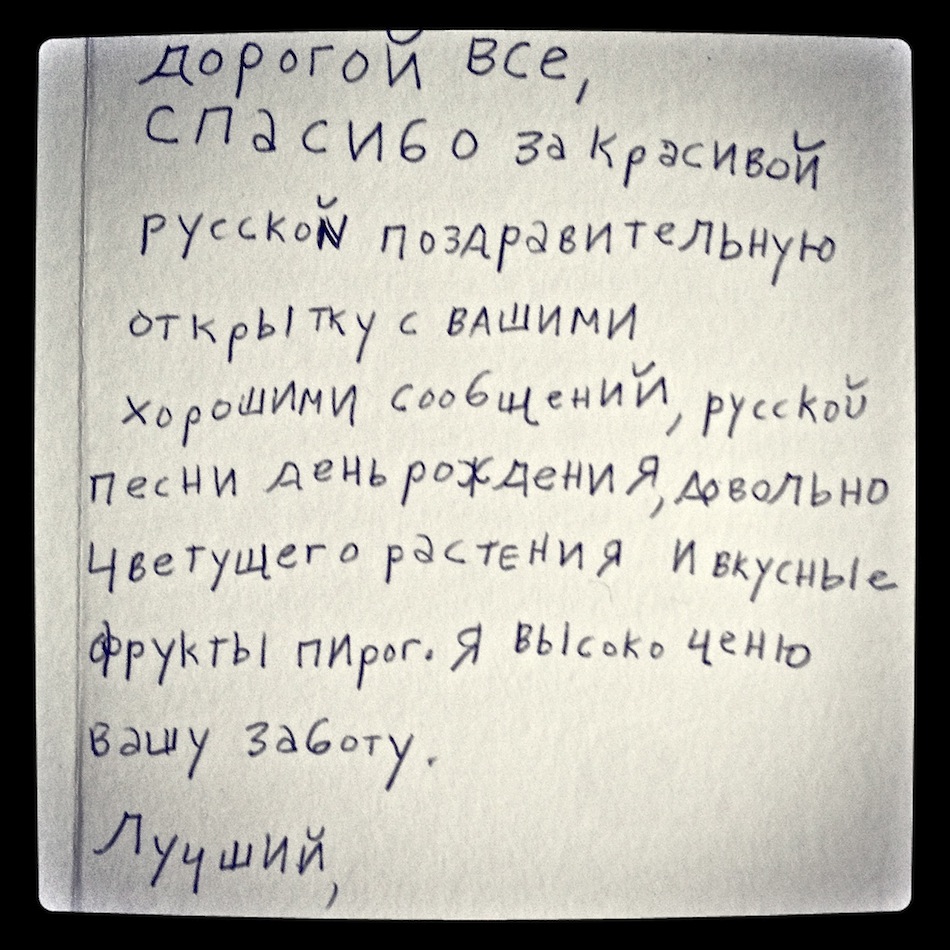 Дорогой все,
спасибо за красивой
русской поздравительную
открытку с вашими
хорошими сообщений, русской
песни день рождения, довольно
цветущего растения и вкусные
фрукты пирог. Я высоко ценю
вашу заботу.
Лучший,